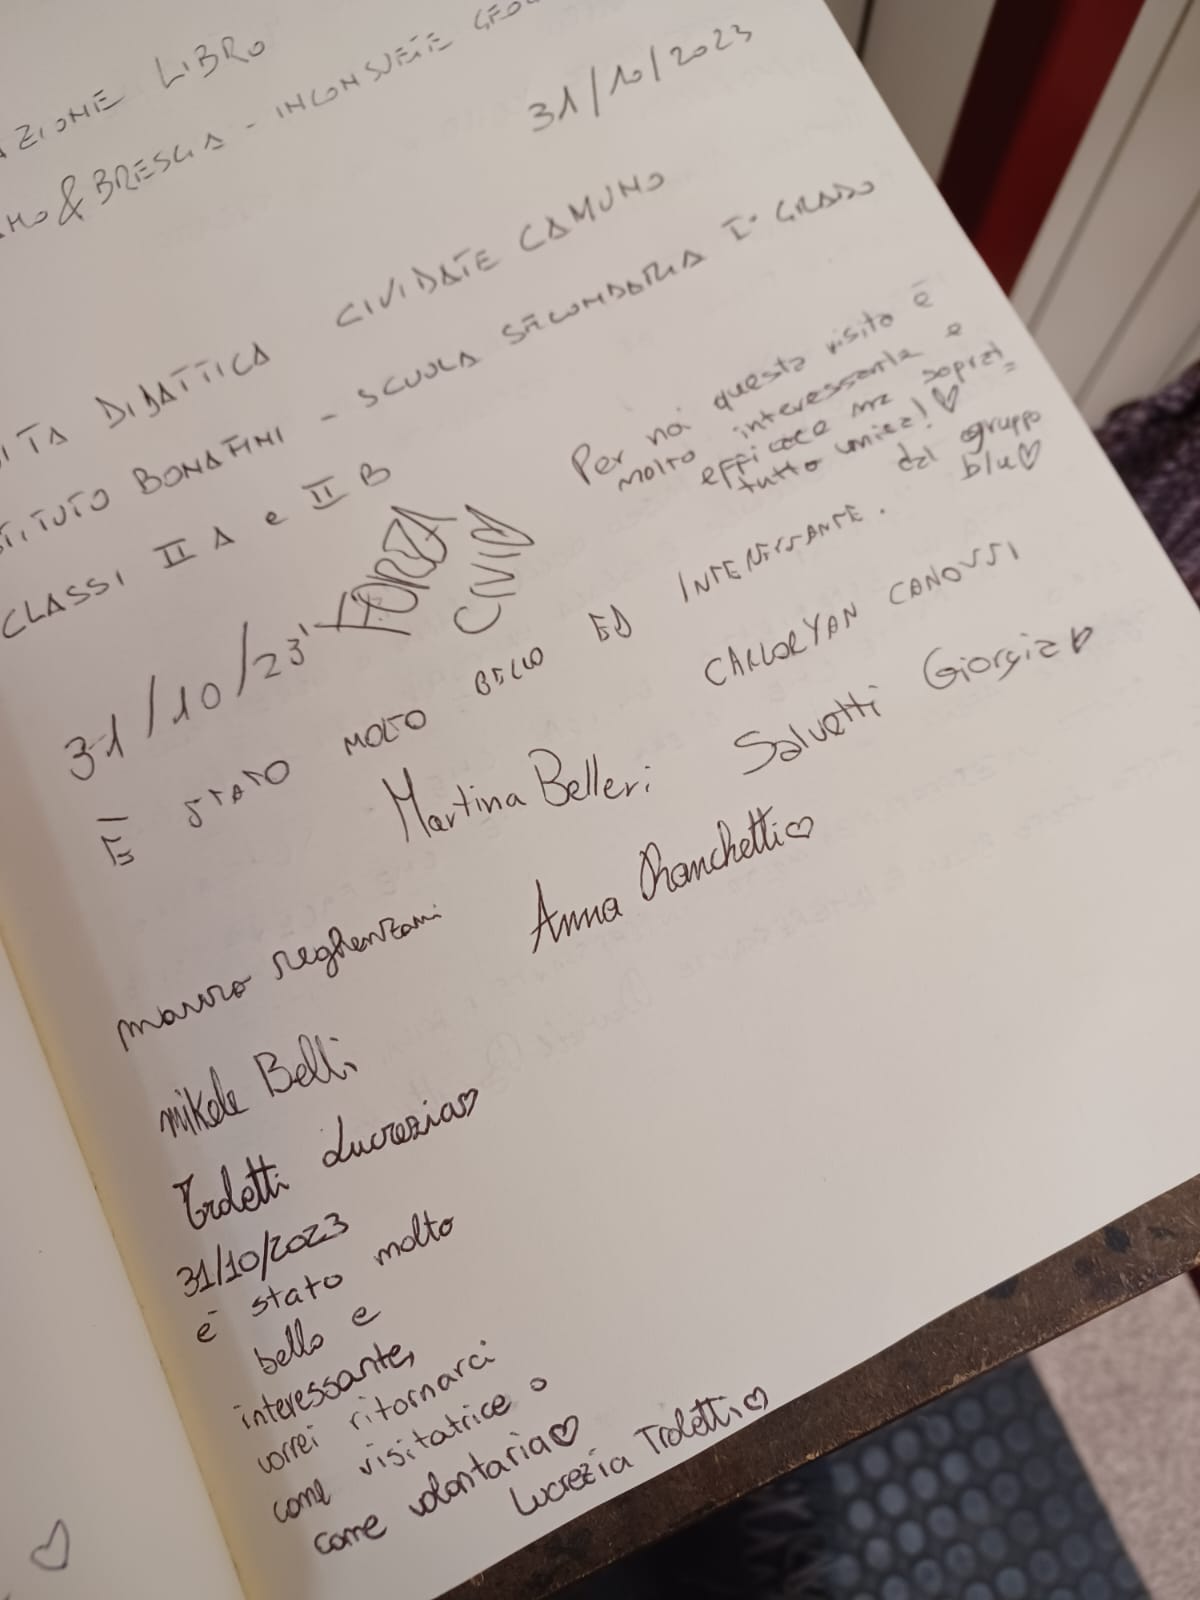 AZIONE LIBRO
AMO & BRESCIA - INCONSUETE GEO
31/10/2023
ITA DIDATTICA CIVIDATE CAMUNO
STITUTO BONAFINI - SCUOLA SECONDARIA I° GRADO
CLASSI II A e II B
Per noi questa visita è
molto interessante e
efficace ma soprat=
tutto unica! ♡
dal gruppo
blu ♡
31/10/23' FORZA
CIVID
È STATO MOLTO BELLO ED INTERESSANTE.
CARLORYAN CANOSSI
Martina Belleri Salvetti Giorgia ♡
mauro reghenzani Anna Franchetti ♡
mikele Belli
Troletti Lucrezia ♡
31/10/2023
è stato molto
bello e
interessante,
vorrei ritornarci
come visitatrice o
come volontaria ♡
Lucrezia Troletti ♡